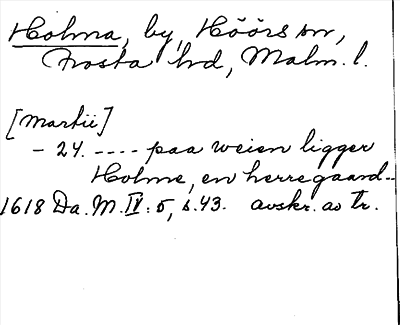 Holma, by, Höörs sn,
Frosta hrd, Malm. l.
[Martii]
- 24. ---- paa weien ligger
Holme, en herregaard--
1618 Da. M. IV: 5, s. 43. avskr. av tr.